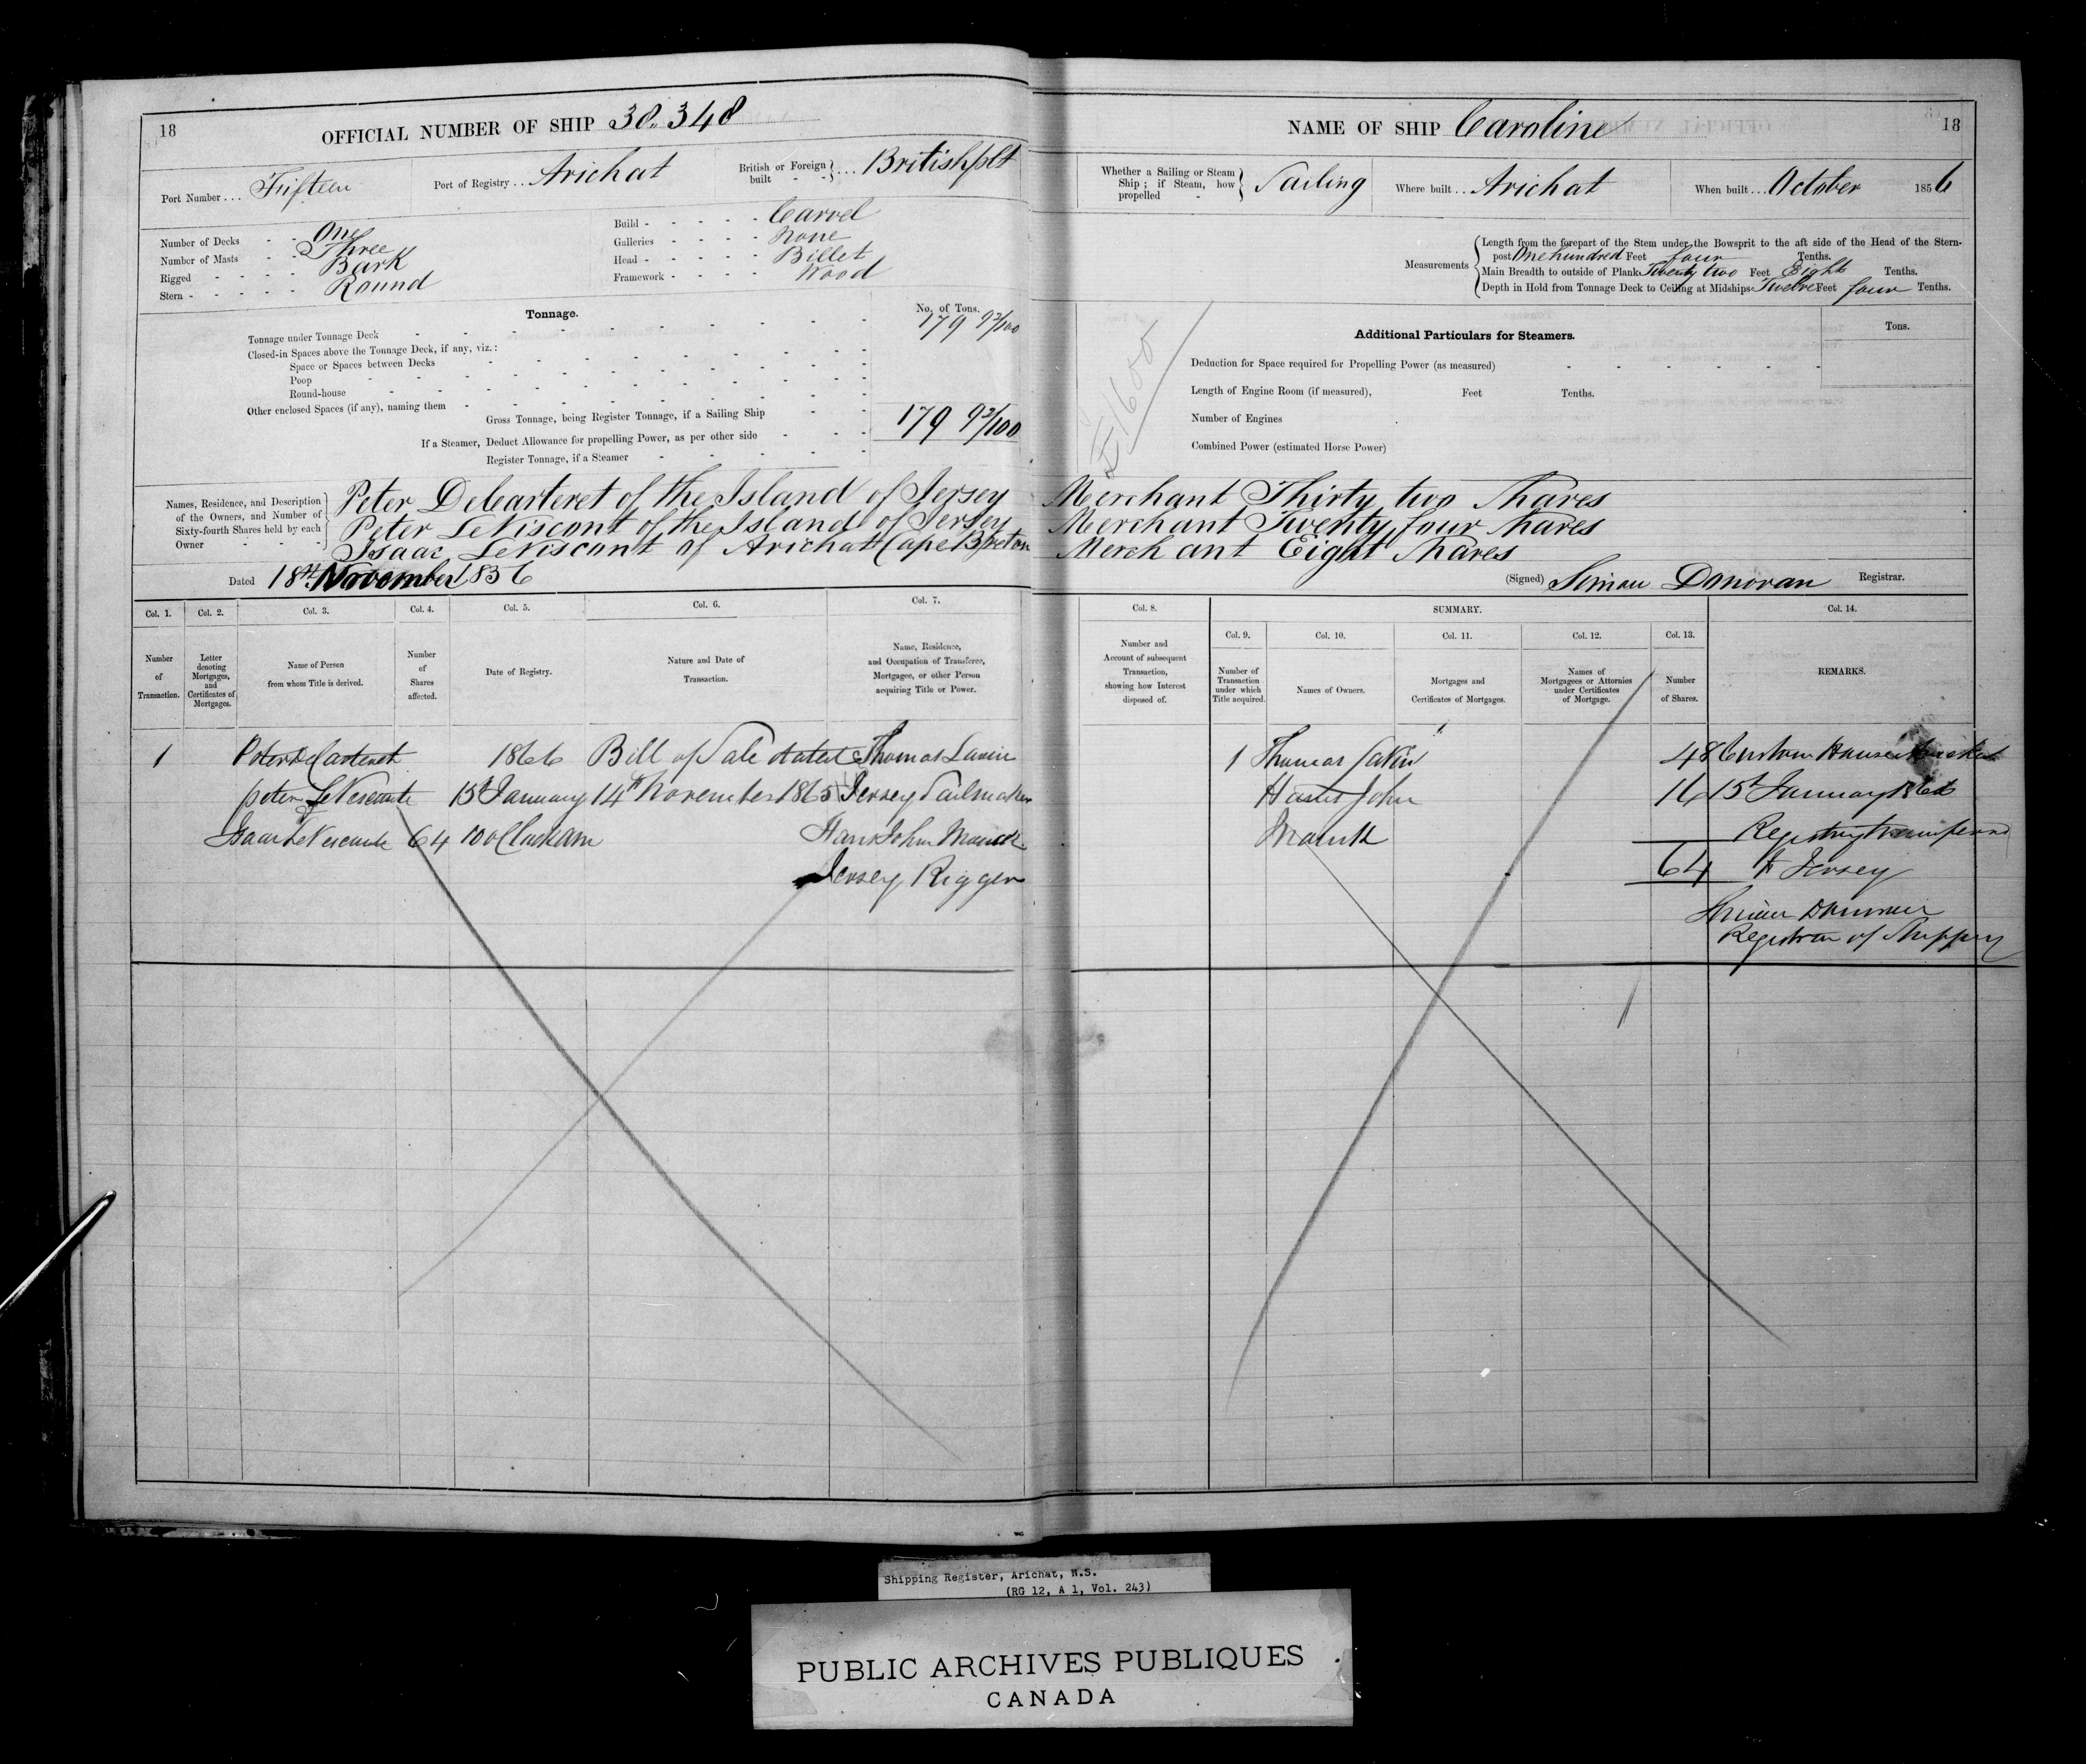 18
OFFICIAL NUMBER OF SHIP 38.348
Port Number . . . Fifteen
Port of Registry . . Arichat
British or Foreign built - - } . . . British plt
Number of Decks - - One
Number of Masts - - Three
Rigged - - - - - Bark
Stern - - - - - - Round
Build - - - - - - Carvel
Galleries - - - - - None
Head - - - - - - Billet
Framework - - - - Wood
Tonnage.
No. of Tons.
Tonnage under Tonnage Deck 179 92/100
Closed-in Spaces above the Tonnage Deck, if any, viz.:
Space or Spaces between Decks
Poop
Round-house
Other enclosed Spaces (if any), naming them
Gross Tonnage, being Register Tonnage, if a Sailing Ship 179 92/100
If a Steamer, Deduct Allowance for propelling Power, as per other side
Register Tonnage, if a Steamer
Names, Residence, and Description of the Owners, and Number of Sixty-fourth Shares held by each Owner
Peter DeCarteret of the Island of Jersey
Peter LeViscont of the Island of Jersey
Isaac LeViscont of Arichat Cape Breton
Dated 18th November 1856
Col. 1. Col. 2. Col. 3. Col. 4. Col. 5. Col. 6. Col. 7.
Number of Transaction.
Letter denoting Mortgages, and Certificates of Mortgages.
Name of Person from whom Title is derived.
Number of Shares affected.
Date of Registry.
Nature and Date of Transaction.
Name, Residence, and Occupation of Transferee, Mortgagee, or other Person acquiring Title or Power.
1 Peter DeCarteret 1866 Bill of Sale dated Thomas
Peter LeVesconte 15th January 14th November 1865 Jersey Sailmaker
Isaac LeVesconte 64 10 o'Clock am John
Jersey Rigger
18
NAME OF SHIP Caroline
Whether a Sailing or Steam Ship; if Steam, how propelled - } Sailing
Where built . . . Arichat
When built . . . October 1856
Measurements
Length from the forepart of the Stem under the Bowsprit to the aft side of the Head of the Stern-
post One hundred Feet four Tenths.
Main Breadth to outside of Plank Twenty two Feet Eight Tenths.
Depth in Hold from Tonnage Deck to Ceiling at Midships Twelve Feet four Tenths.
£1600
Additional Particulars for Steamers.
Tons.
Deduction for Space required for Propelling Power (as measured)
Length of Engine Room (if measured), Feet Tenths.
Number of Engines
Combined Power (estimated Horse Power)
Merchant Thirty two Shares
Merchant Twenty four Shares
Merchant Eight Shares
(Signed) Simon Donovan Registrar.
Col. 8.
SUMMARY.
Col. 14.
Col. 9. Col. 10. Col. 11. Col. 12. Col. 13.
Number and Account of subsequent Transaction, showing how Interest disposed of.
Number of Transaction under which Title acquired.
Names of Owners.
Mortgages and Certificates of Mortgages.
Names of Mortgagees or Attornies under Certificates of Mortgage.
Number of Shares.
REMARKS.
1 Thomas 48 Custom House
John 16 15th January 1866
Registry transferred
64 to Jersey
Simon Donovan
Registrar of Shipping
Shipping Register, Arichat, N.S.
(RG 12, A 1, Vol. 243)
PUBLIC ARCHIVES PUBLIQUES
CANADA